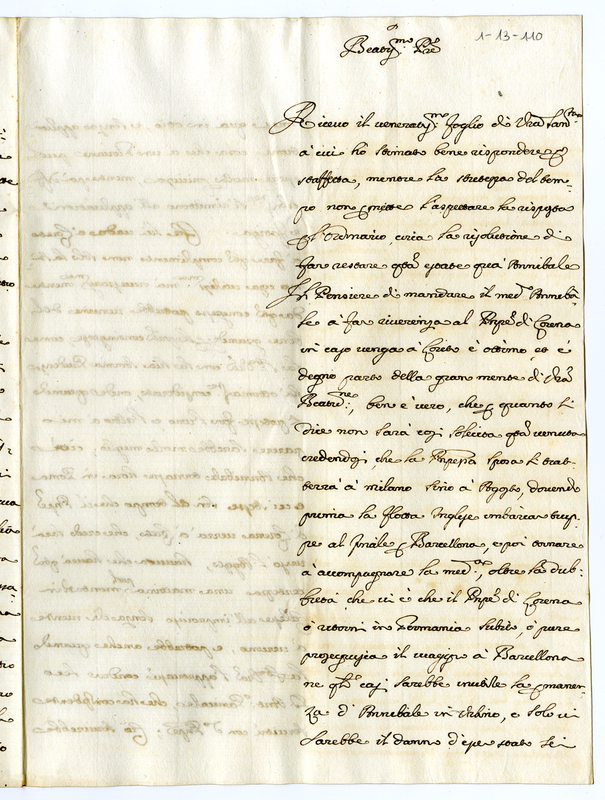 1-13-110
Beatmo. Pre
Ricevo il veneratmo. foglio di Vra Santà
à cui hò stimato bene rispondere p
staffetta, mentre la strettezza del tem-
po non pmette l'aspettare la risposta
p l'ordinario, circa la risolutione di
far restare qta estate quà Annibale
Il Pensiere di mandare il medo Anniba
le à far riverenza al Pnpe di Lorena
in caso venga à Loreto è ottimo, et è
degno parto della gran mente di Vra
Beatne:, ben è vero, che p quanto si
dice non sarà così sollecita qta venuta
credendosi, che la Pnpessa sposa si trat-
terrà à Milano sino à Agosto, dovendo
prima la flotta Inglese imbarcar trup-
pe al Finale p Barcellona, e poi tornare
à accompagnare la meda, oltre la dub-
bietà che vi è che il Pnpe di Lorena
ò ritorni in Germania subito, ò pure
proseguisca il viaggio à Barcellona
ne qli casi sarebbe inutile la pmanen-
za d'Annibale in Urbino, e solo vi
sarebbe il danno d'esser stato sei